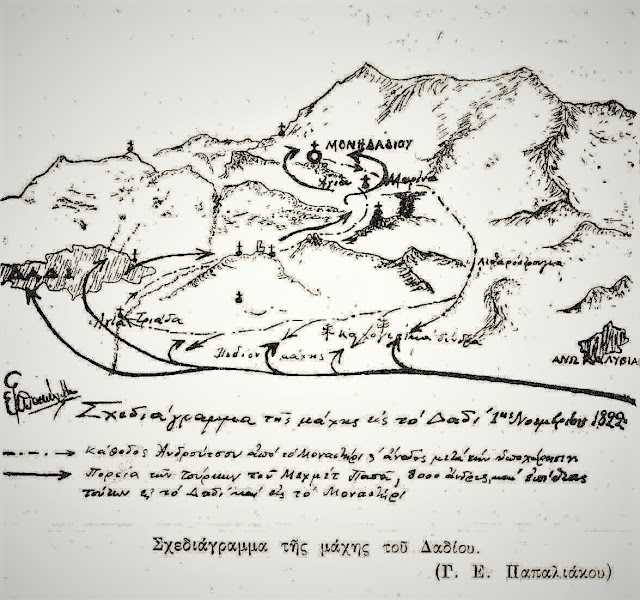 ΜΟΝΗ ΔΑΔΙΟΥ
Ἁγία Μαρίνα
ΔΑΔΙ
Ἁγία Τριάδα
Πεδίον μάχης
ΑΝΩ ΚΑΛΥΒΙΑ
Σχεδιάγραμμα τῆς μάχης εἰς τό Δαδί 1ης Νοεμβρίου 1822
Κάθοδος Ἀνδρούτσου ἀπό τό Μοναστήρι & ἄνοδος μετά τήν ὑποχώρησιν
Πορεία τῶν τούρκων τοῦ Μεχμέτ Πασᾶ, 8000 ἄνδρες καί ἐπιθέσεις
τούτων εἰς τό Δαδί καί εἰς τό Μοναστήρι
Σχεδιάγραμμα τῆς μάχης τοῦ Δαδίου.
(Γ. Ε. Παπαλιάκου)